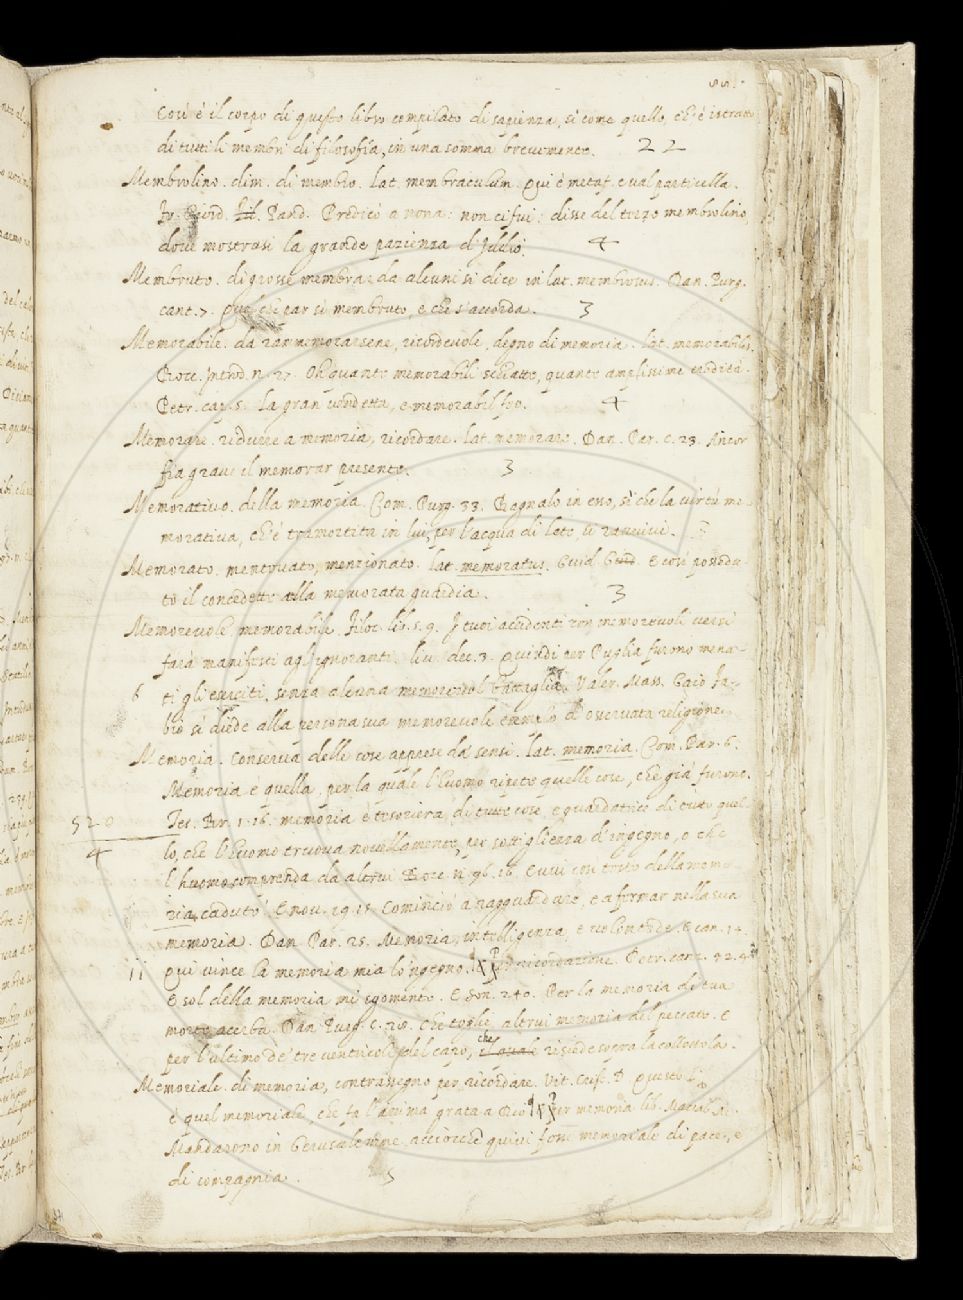 Così è il corpo di questo libro compilato di sapienza, sì come quello, ch'è istratto
di tutti li membri di filosofia, in una somma brevemente. 22
Membrolino. dim. di membro. lat. membraculum. Qui è metaf. e val particella.
Pand. Predicò a nona: non ci fui: disse del terzo membrolino,
dove mostrasi la grande pazienza di 4
Membruto. di grosse membra: da alcuni si dice in lat. membrosus. Dan. Purg.
cant. 7. Quel che par sì membruto, e che s'accorda. 3
Memorabile. da rammemorarsene, ricordevole, degno di memoria. lat. memorabilis.
Bocc. Introd. n. 27. Oh quante memorabili schiatte, quante amplissime eredità.
Petr. cap. 5. la gran vendetta, e memorabil feo. 4
Memorare. riducere a memoria, ricordare. lat. memorare. Dan. Par. c. 23. Ancor
fia grave il memorar presente. 3
Memorativo. della memoria. Com. Purg. 33. Bagnalo in eno, sì che la virtù me-
morativa, ch'è tramortita in lui, per l'acqua di Lete si ravvivi. 3
Memorato. mentovato, menzionato. lat. memoratus. Guid. E così possedu-
to il concedette alla memorata guardia. 3
Memorevole. memorabile. Filoc. lib. 5. 9. I tuoi accidenti con memorevoli versi
farà manifesti agl'ignoranti. liv. dec. 3. Quindi per Puglia furono mena-
6 ti gli eserciti, senza alcuna memorevol battaglia. Valer. Mass. Gaio Fa-
bio si diede alla persona sua memorevole esemplo d'osservata religione.
Memoria. Conserva delle cose apprese da' sensi. lat. memoria. Com. Par. 6.
Memoria è quella, per la quale l'huomo ripete quelle cose, che già furono.
520 Tes. Br. 1. 16. memoria è tesoriera di tutte cose, e guardatrice di tutto quel
4 lo, che l'huomo truova novellamente, per sottiglienza d'ingegno, o che
l'huomo comprenda da altrui. Bocc. n. 96. 16. E vivi con torto della memo-
ria caduto. E nov. 29. 15. Cominciò a ragguardare, e a formar nella sua
memoria. Dan. Par. 25. Memoria, intelligenza, e volontade. E can. 14.
11 Qui vince la memoria mia lo ingegno. per ricordazione. Petr. canz. 32. 4
E sol della memoria mi sgomento. E Son. 240. Per la memoria di tua
morte acerba. Dan. Purg. c. 28. Che toglie altrui memoria del peccato. E
per l'ultimo de' tre ventricoli del capo, il quale che risiede sopra la collottola.
Memoriale. di memoria, contrassegno per ricordare. Vit. Crist. D. Questo
è quel memoriale, che fa l'anima grata a Dio per memoria. lib. Maccab.
Mandarono in Gerusalemme, acciocchè quivi fosse memoriale di pace, e
di compagnia. 5